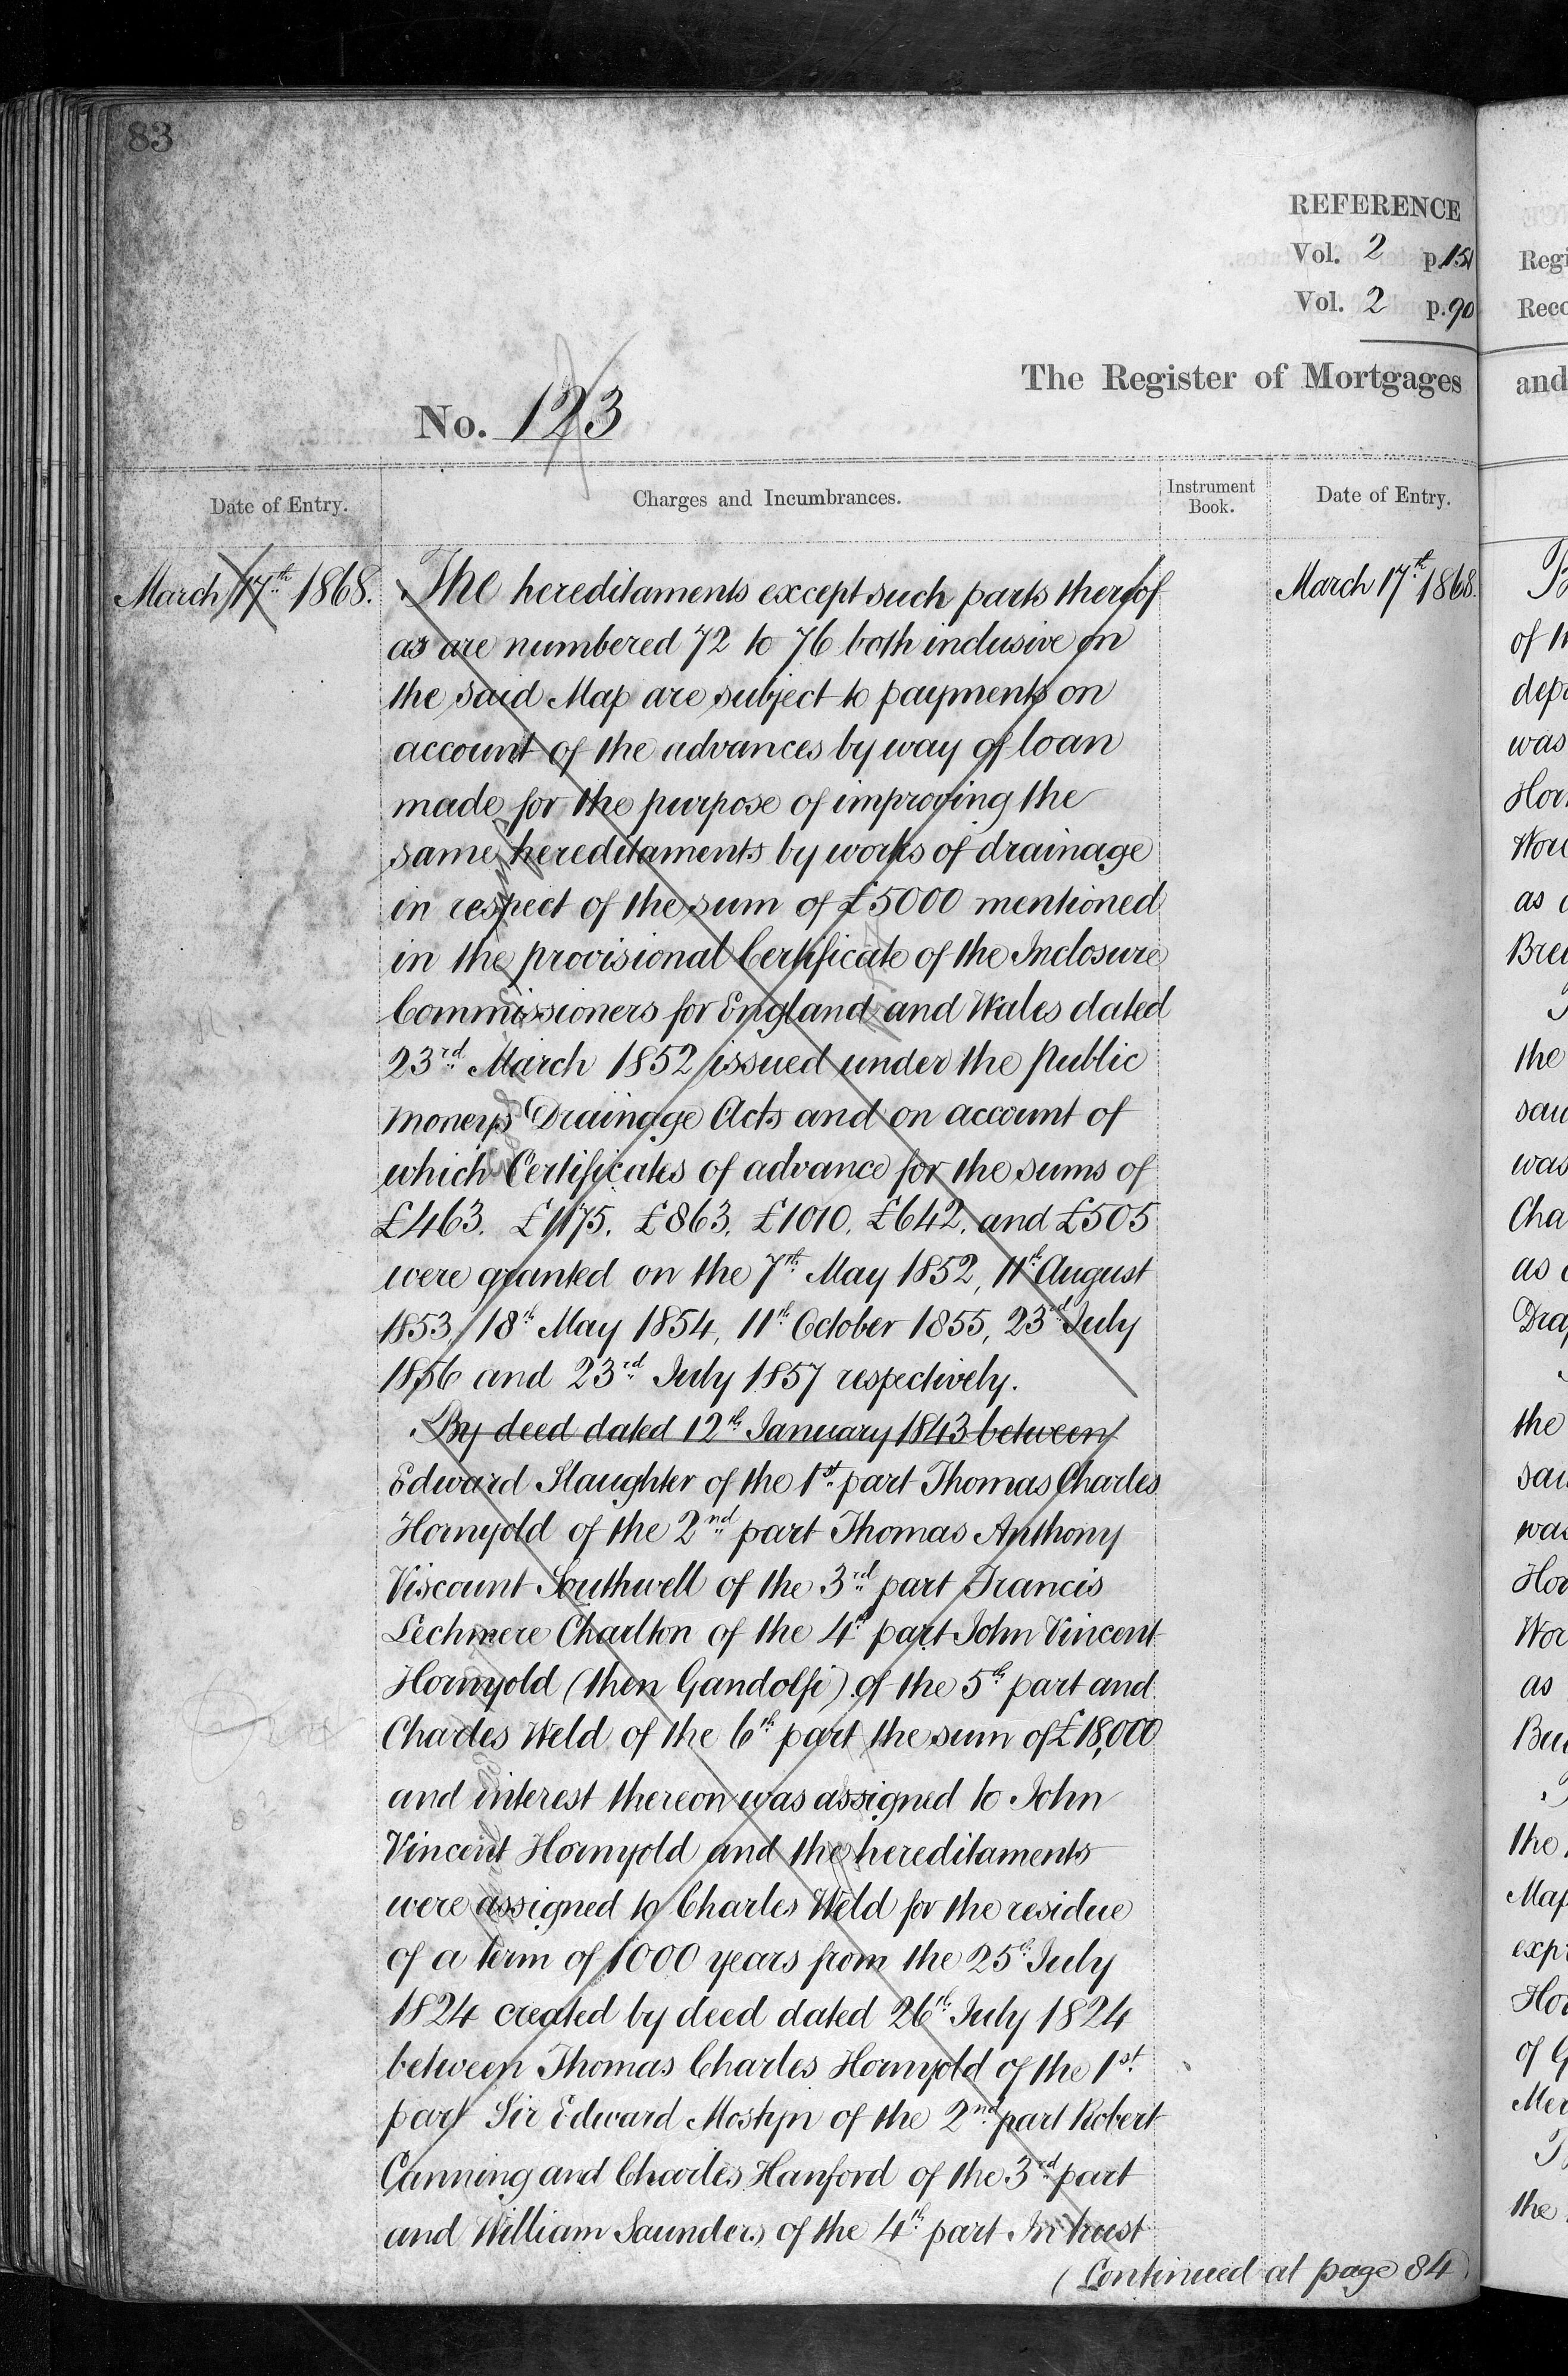 83
REFERENCE
Vol. 2 p. 151
Vol. 2 p. 90
The Register of Mortgages
No. 123
Date of Entry.
Charges and Incumbrances.
Instrument Book.
Date of Entry.
March 17th 1868.
March 17th 1868.
The hereditaments except such parts thereof
as are numbered 72 to 76 both inclusive on
the said Map are subject to payments on
account of the advances by way of loan
made for the purpose of improving the
same hereditaments by works of drainage
in respect of the sum of £5000 mentioned
in the provisional Certificate of the Inclosure
Commissioners for England and Wales dated
23rd March 1852 issued under the Public
Moneys Drainage Acts and on account of
which Certificates of advance for the sums of
£463. £1175. £863. £1010. £642. and £505
were granted on the 7th May 1852, 11th August
1853, 18th May 1854, 11th October 1855, 23rd July
1856 and 23rd July 1857 respectively.
By deed dated 12th January 1843 between
Edward Slaughter of the 1st part Thomas Charles
Hornyold of the 2nd part Thomas Anthony
Viscount Southwell of the 3rd part Francis
Lechmere Charlton of the 4th part John Vincent
Hornyold (then Gandolfi) of the 5th part and
Charles Weld of the 6th part the sum of £18,000
and interest thereon was assigned to John
Vincent Hornyold and the hereditaments
were assigned to Charles Weld for the residue
of a term of 1000 years from the 25th July
1824 created by deed dated 26th July 1824
between Thomas Charles Hornyold of the 1st
part Sir Edward Mostyn of the 2nd part Robert
Canning and Charles Hanford of the 3rd part
and William Saunders of the 4th part In trust
(Continued at page 84)